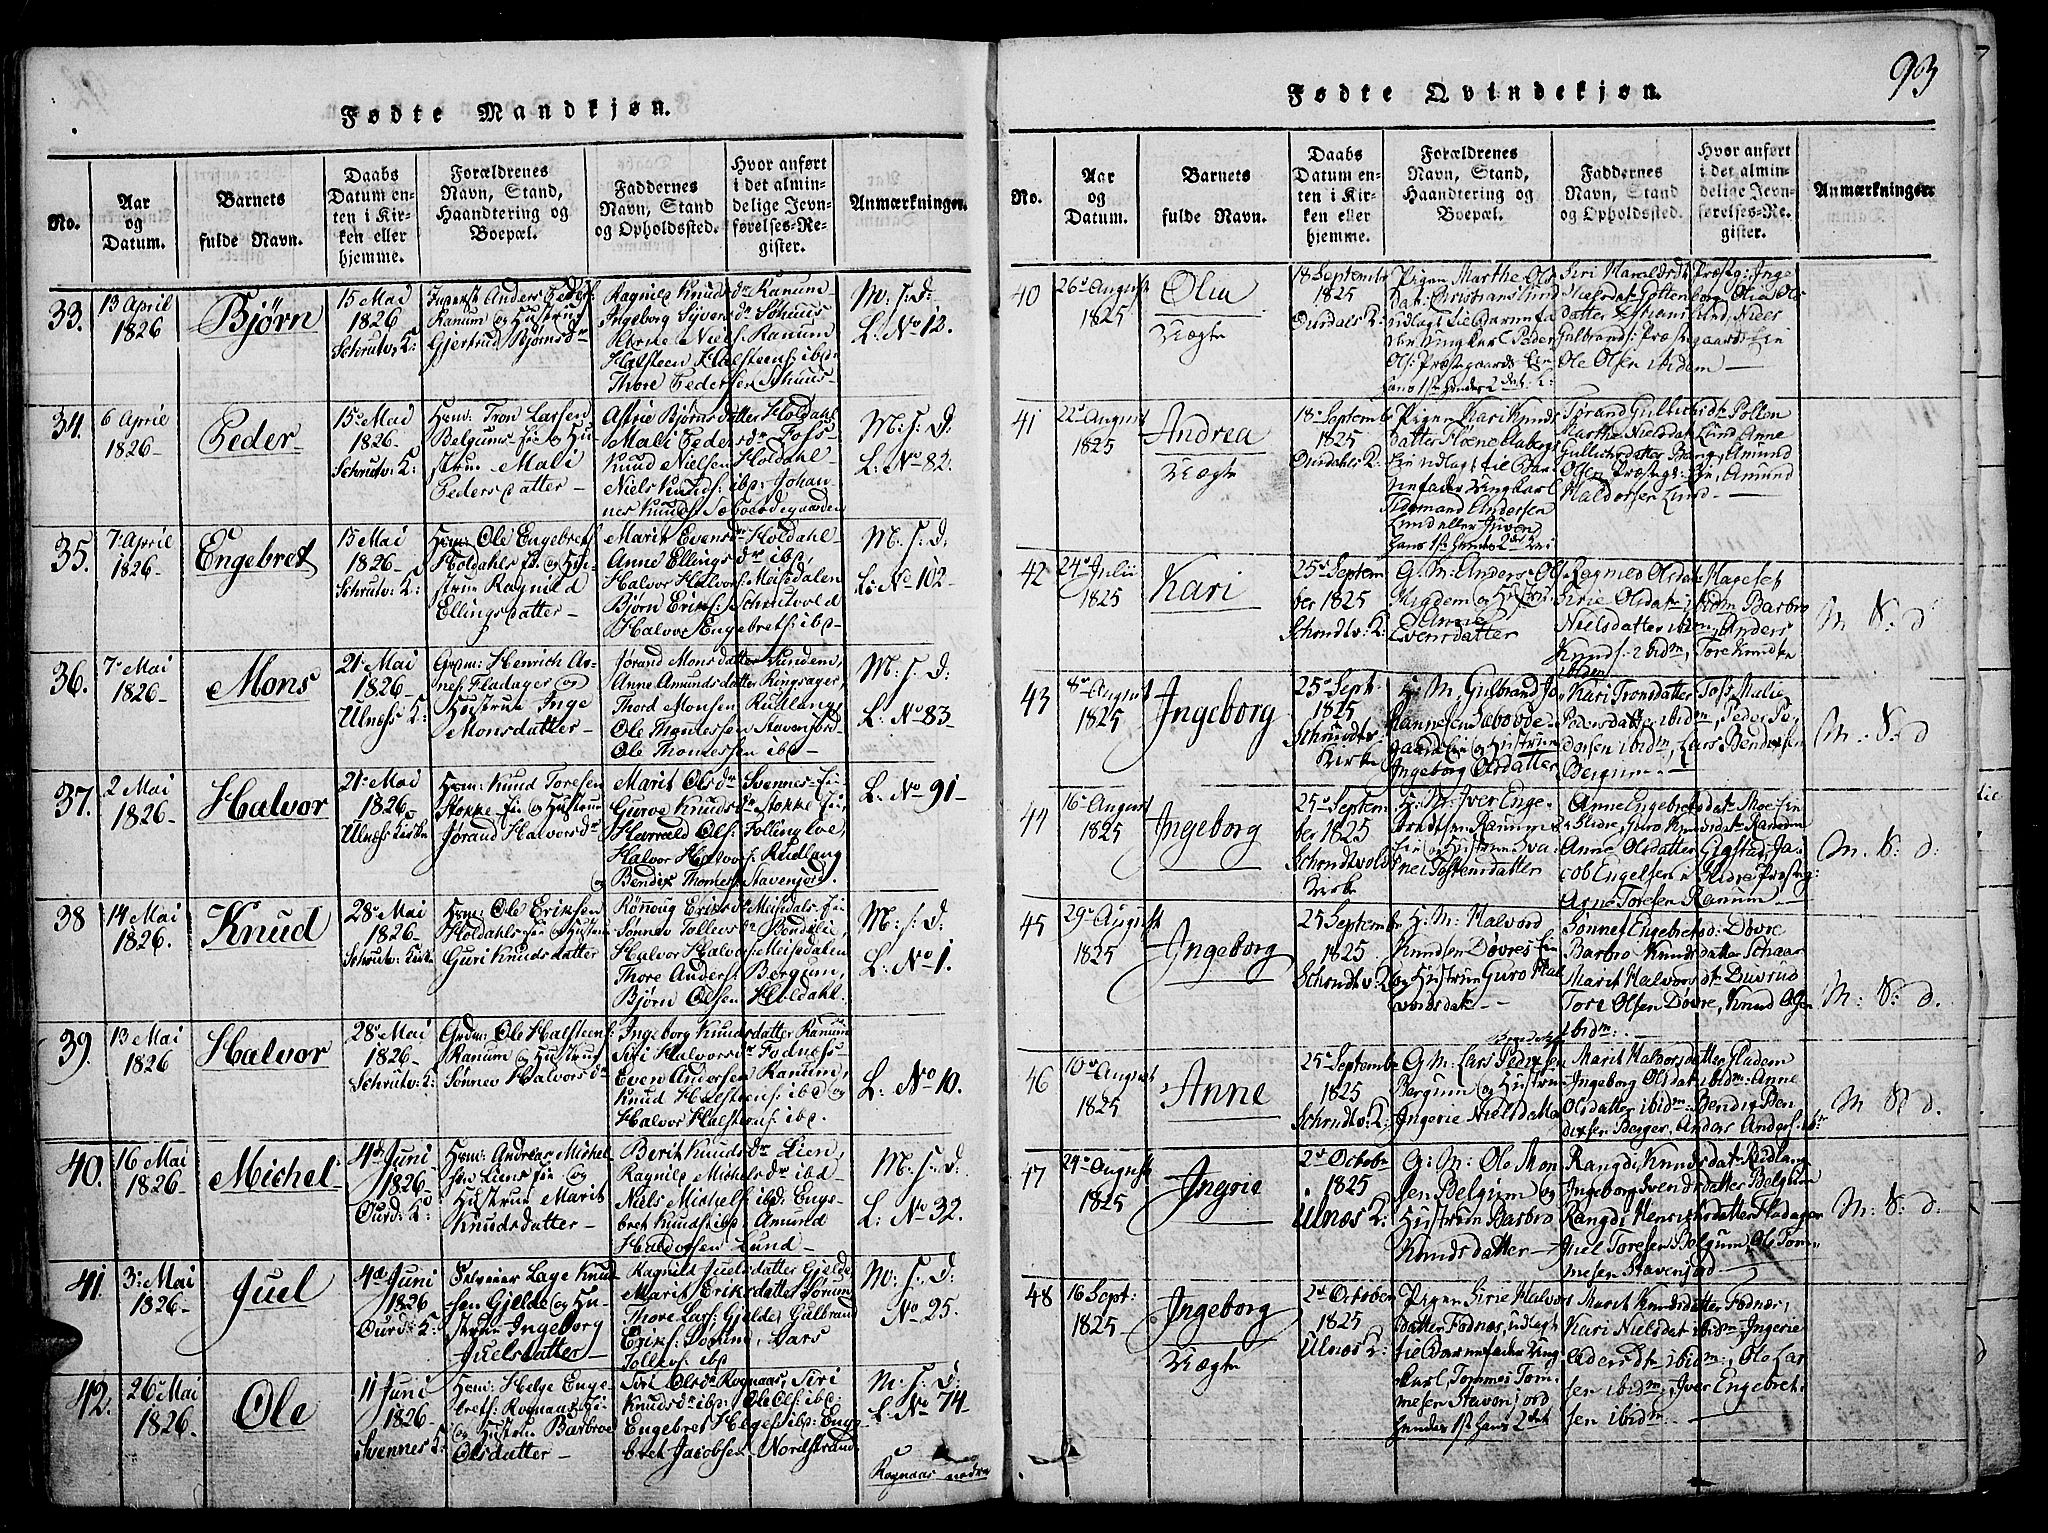 93
Fødte Mandkjøn.
No.
Aar
og
Datum.
Barnets
fulde Navn.
Daabs
Datum en-
ten i Kir-
ken eller
hjemme.
Forældrenes
Navn, Stand,
Haandtering og
Boepæl.
Faddernes
Navn, Stand
og Opholdssted.
Hvor anført
i det almin-
delige Jevn-
førelses-Re-
gister.
Anmærkninger.
33.
13 April
1826
Bjørn
15 Mai
1826
Schrutv: K:
Anders Peders:
Ranum og Hustrue
Gjertrud Bjørnsdr
Ragnild Knudsdr Ranum
Ingeborg Syversdr
Arne Niels: Ranum
Halsteen Halsteens: ibd:
Thore Pedersen
M: s: D:
L: No 12.
34.
6 April
1826
Peder
15 Mai
1826
Schrutv: K:
Huusm: Tron Larsen
Belgums Eie og Hu-
strue Mali
Pedersdatter
Astrie Bjørnsdatter Holdahl
Mali Pedersdr Foss
Knud Nielsen Holdahl
Niels Knuds: ibd: Johan-
nes Knuds: Sæboeødegaarden
M: s: D:
L: No 82.
35.
7 April
1826
Engebret
15 Mai
1826
Schrutv: K:
Huusm: Ole Engebrets:
Holdahls Ei: og Hu-
strue Ragnild
Ellingsdatter
Marit Evensdr Holdahl
Anne Ellingsdr ibd:
Halvor Halvors: Meisdalen
Bjørn Eriks: Schrutvold
Halvor Engebrets: ibd
M: s: D:
L: No 102
36.
7 Mai
1826
Mons
21 Mai
1826
Ulnæss K:
Grdm: Henrich Ar-
nes: Fladager og
Hustrue Inge
Monsdatter
Jørand Monsdatter Lundem,
Anne Amundsdatter Ringsager
Thord Monsen Rudlang
Ole Thomessen Stavenjord
Ole Thomessen ibd
M: s: D:
L: No 83
37.
2 Mai
1826
Halvor
21 Mai
1826
Ulnæss Kirke
Huusm: Knud Toresen
Stokke Eie og Hustrue
Jørand Halvorsdr
Marit Olsdr Svennes-Eie
Guroe Knudsdr Stokke Eie
Harrald Ols: Folling
Halvor Halvors: Rudlang
og Bendix Thomes: Stavenjord.
L: No 91
38
14 Mai
1826.
Knud
28 Mai
1826
Schrutv: Kirke
Huusm: Ole Eriksen
Holdahls Eie og Hustrue
Guri Knudsdatter
Rønnoug Eriksdr Meisdals-Eie
Sønnev Tollevsdr Bendelie,
Halvor Halvors: Meisdalen
Thore Anders: Bergum,
Bjørn Olsen Holdahl
M: s: D:
L: No 1.
39.
13 Mai
1826
Halvor
28 Mai
1826
Schrutv: K:
Grdm: Ole Halsteens:
Ranum og Hustrue
Sønnev Halvorsdr
Ingeborg Knudsdatter Ranum
Siri Halvorsdr Fodness
Even Andersen Ranum,
Knud Halsteens: ibd og
Halvor Halsteens: ibd.
L: No 10.
40.
16 Mai
1826
Michel
4d Juni
1826
Ourd: K:
Huusm: Andreas Michel-
sen Liens Eie og
Hustrue Marit
Knudsdatter
Berit Knudsdr Lien
Ragnild Michelsdr ibd
Niels Michels: ibd: Enge-
bret Knuds: ibd, Amund
Haldorsen Lund
M: s: D:
L: No 32.
41.
3 Mai
1826
Juel
4d Juni
1826
Ourd: K:
Selveier Lage Knud-
sen Gjelde og Hu-
strue Ingeborg
Juelsdatter
Ragnild Juelsdatter Gjelde
Marit Eriksdatter
Thore Lars: Gjelde, Gulbrand
Eriks: Lars
Tollevs: ibd
M: s: D:
No 25.
42.
26 Mai
1826.
Ole
11 Juni
1826
Svennes K:
Huusm: Helge Enge-
brets: Rognaas Ei:
og Hustrue Barbroe
Olsdatter
Siri Olsdr Rognaas, Siri
Knudsdr ibd: Ole Ols: ibd:
Engebret Helges: ibd: Enge-
bret Jacobsen Nordstrand
M: s: D:
L: No 74
Rognaas nedre
Fødte Qvindekjøn.
No.
Aar
og
Datum.
Barnets
fulde Navn.
Daabs
Datum en-
ten i Kir-
ken eller
hjemme.
Forældrenes
Navn, Stand,
Haandtering og
Boepæl.
Faddernes
Navn, Stand
og Opholdssted.
Hvor anført
i det almin-
delige Jevn-
førelses-Re-
gister.
Anmærkninger.
40
26 August
1825
Olia
Uægte
18 Septemb
1825
Ourdals K:
Pigen Marthe Ols-
dat: Christianslund
udlagt til Barnefa-
der Ungkarl Peder
Ols: Præstegaards Eie
hans 1ste hendes 2det L:
Siri Haraldsdt Præstg: Inge
Nielsdat Gottenborg, Olia Ols-
datter Christianslund, Niels
Gulbrands: Præstegaards Eie
Ole Olsen ibidem
41
22 August
1825
Andrea
Uægte
18 Septemb
1825
Ourdals K:
Pigen Kari Knuds-
datter
Eie udlagt til Bar-
nefader Ungkarl
Tidemand Andersen
Lund
hans 1ste hendes 2det
Jørand Gulliksdt Pollen
Marthe Nielsdat Lund, Anne
Gulliksdatter Bang, Amund
Olsen Præstegs: Eie, Amund
Haldorsen Lund
42
24 Julii
1825
Kari
25 Septem
ber 1825
Schrudtv: K:
G: M: Anders Ols:
og Hustrue
Evensdatter
Ragnild Olsdat Hageset
Sirie Olsdat ibidm Barbro
Nielsdatter ibidm, Anders
Knuds: ibidm, Tore Knudsen
ibidem
M: S: d
43
8 August
1825
Ingeborg
25 Sept.
1825
Schrudtv:
Kirke
H: M: Gulbrand Jo-
hannesen Sæboeøde-
gaards Eie og Hustrue
Ingeborg Olsdatter
Kari Tronsdatter Foss, Malie
Pedersdatter ibidm, Peder Pe-
dersen ibidm, Lars Bendixsen
Bergum
M: S: d
44
16 August
1825
Ingeborg
25 Septem
ber 1825
Schrudtvolds
Kirke
H: M: Iver Enge-
bretsen Ranums
Eie og Hustrue
Anne Engebretsdat Moe Eie
Slidre, Guro Knudsdat Ranum
Anne Olsdatter Gigstad, Ja-
cob Engelsen Slidre Præstg:
Arne Toresen Ranum
M: S: d:
45
29 August
1825
Ingeborg
25 Septemb
1825
Schrudtv: K:
H: M: Halvord
Knudsen Døvres Eie
og Hustrue Guro Hal-
vordsdat
Sønnet Engebretsd: Døvre
Barbro Knudsdatter Schaar
Marit Halvorsdt
Tore Olsen Døvre, Knud Olsen
ibidm
M: S: d.
46
10 August
1825
Anne
25 Septemb
1825
Schrudtv: K:
G: M: Lars
Bergum og Hustrue
Ingerie Nielsdatter
Marit Halvorsdatter
Ingeborg Olsdat ibidm: Anne
Olsdatter ibidm. Bendix Ben-
dixsen Berger, Anders Anders: ibm
M S: d.
47
24 August
1825
Ingrie
2d Octobr
1825
Ulnæs K:
G: M: Ole Mon-
sen Belgum og
Hustrue Barbro
Knudsdatter
Rangdi Knudsdat Rudlang
Ingeborg Svendsdatter Belgum
Rangdi Henrichsdatter Fladager
Juel Toresen Belgum, Ole Tom-
mesen Stavenjord
M: S: d.
48
16 Sept:
1825
Ingeborg
Uægte
2d October
1825
Ulnæs K:
Pigen Sirie Halvors-
datter Fodnæs, udlagt
til Barnefader Ung-
karl, Tommes Tom-
mesen Stavenjord
hendes 1st hans 2det
Marit Knudsdatter Fodnæs,
Kari Nielsdat ibidm, Ingerie
Andersdt ibidm: Ole Lar-
sen ibidm, Iver Engebret-
sen ibidm.